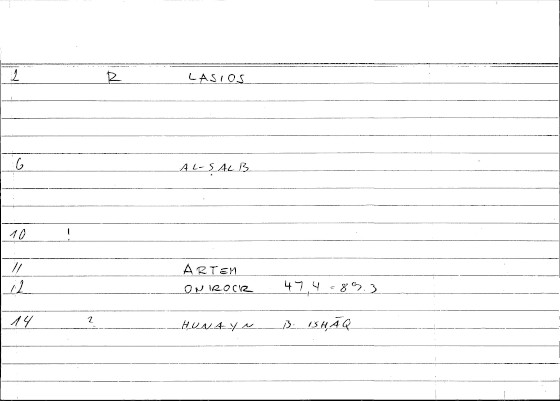 2 R LASIOS
6 AL-ṢALB
10 !
11 ARTEM
12 ONIROCR 47,4 = 89.3
14 ? ḤUNAYN B. ISḤĀQ